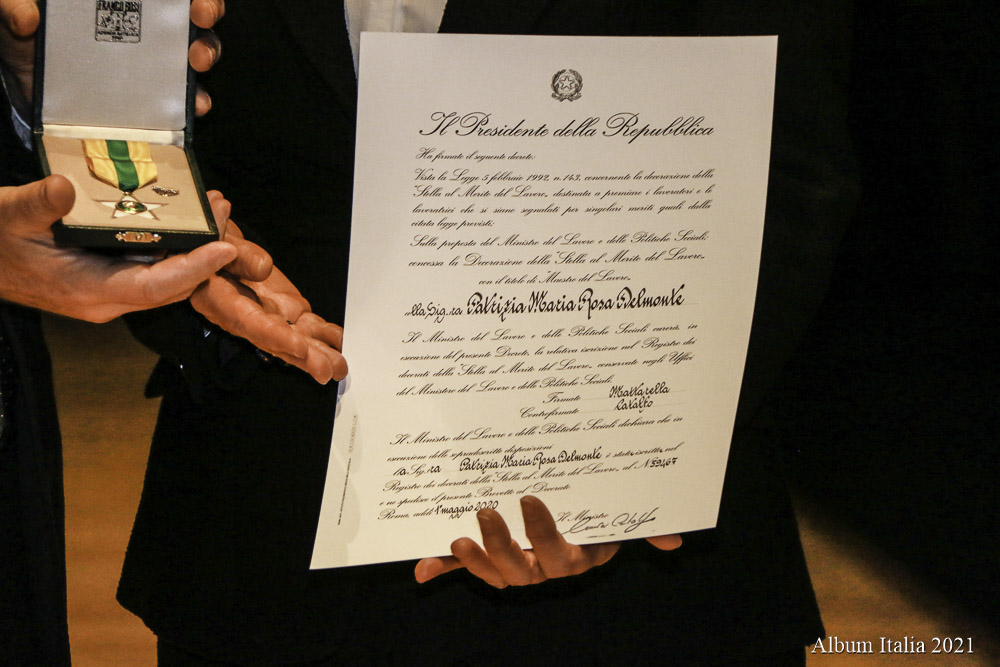 FRANCO BOSI
Il Presidente della Repubblica
Ha firmato il seguente decreto:
Vista la Legge 5 febbraio 1992, n. 143, concernente la decorazione della
"Stella al Merito del Lavoro" destinata a premiare i lavoratori e le
lavoratrici che si siano segnalati per singolari meriti quali dalla
citata legge previsti;
Sulla proposta del Ministro del Lavoro e delle Politiche Sociali;
concessa la Decorazione della "Stella al Merito del Lavoro"
con il titolo di "Maestro del Lavoro"
alla Sig.ra Patrizia Maria Rosa Delmonte
Il Ministro del Lavoro e delle Politiche Sociali curerà, in
esecuzione del presente Decreto, la relativa iscrizione nel Registro dei
decorati della "Stella al Merito del Lavoro" conservato negli Uffici
del Ministero del Lavoro e delle Politiche Sociali.
Firmato Mattarella
Controfirmato Catalfo
Il Ministro del Lavoro e delle Politiche Sociali dichiara che in
esecuzione delle sopradescritte disposizioni
la Sig.ra Patrizia Maria Rosa Delmonte è stata iscritta nel
Registro dei decorati della "Stella al Merito del Lavoro" al N. 59467
e ne spedisce il presente Brevetto al Decorato
Roma, addì 1° maggio 2020
Il Ministro
Album Italia 2021